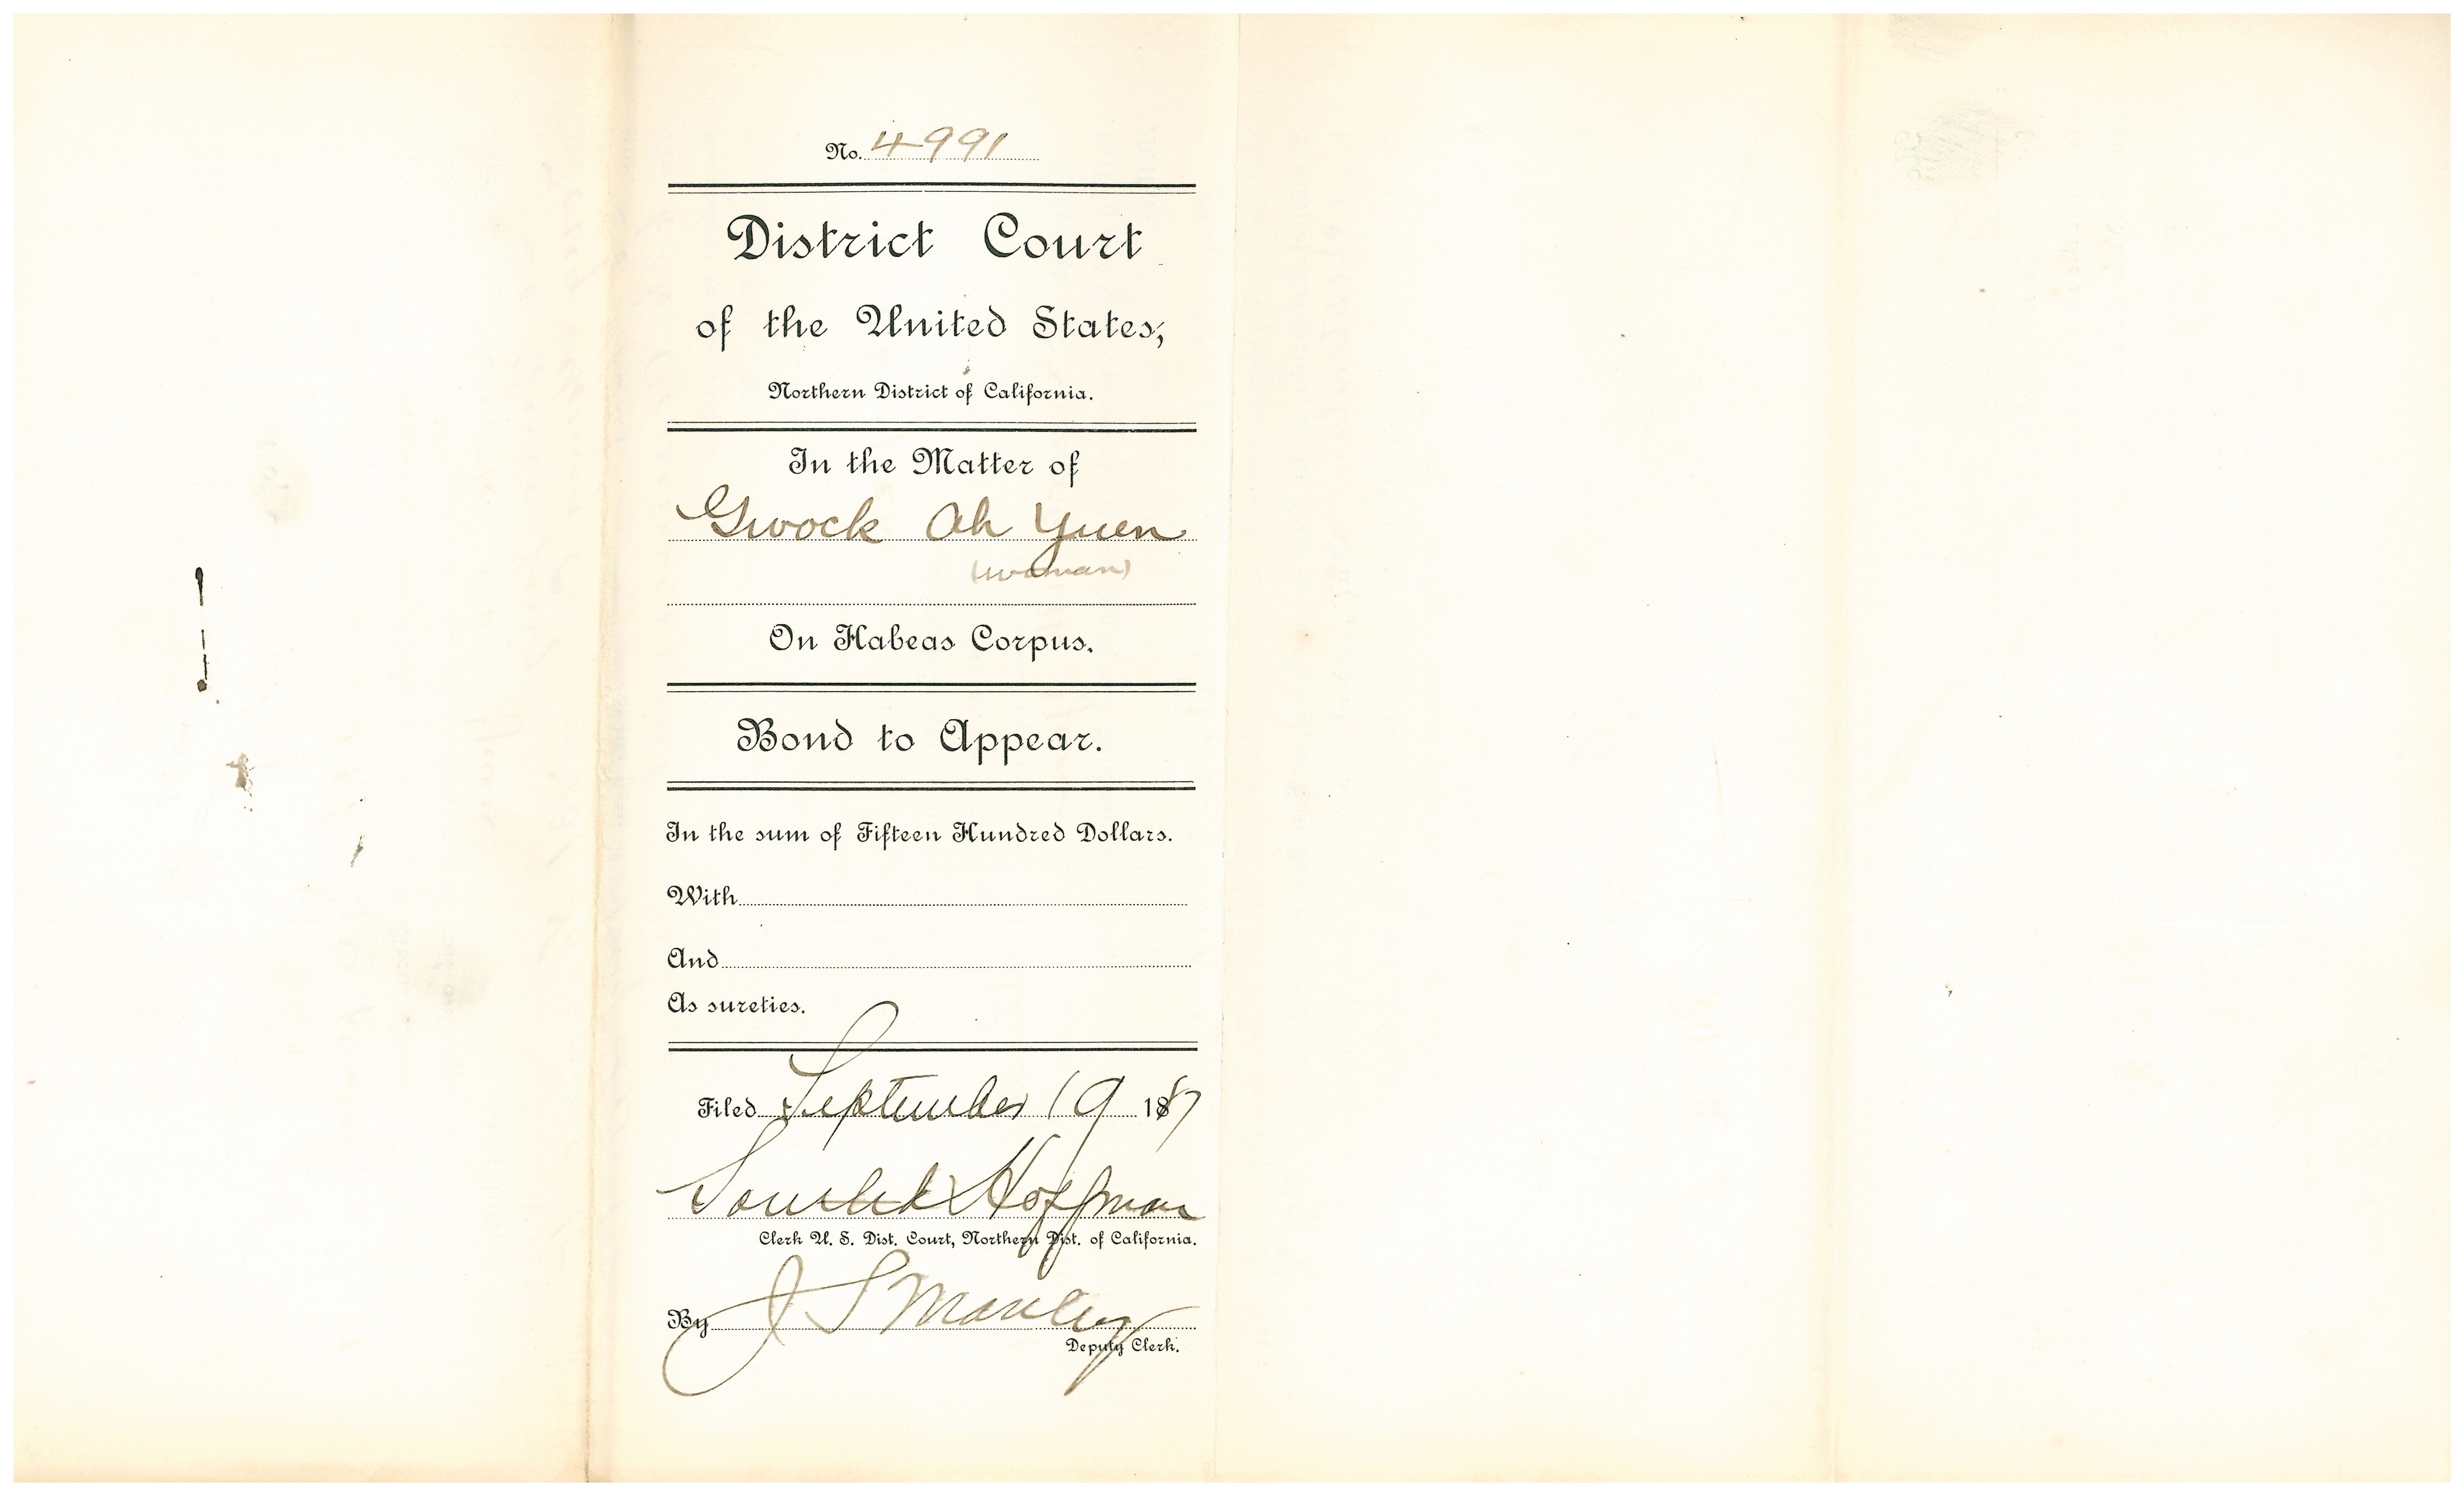 No. 4991
District Court
of the United States,
Northern District of California.
In the Matter of
Gwock Ah Yuen
(woman)
On Habeas Corpus.
Bond to Appear.
In the sum of Fifteen Hundred Dollars.
With
And
As sureties.
Filed September 19 1887
Southard Hoffman
Clerk U. S. Dist. Court, Northern Dist. of California.
By J S Manley
Deputy Clerk.